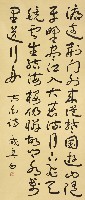 渡遠荊門外來從楚國遊山隨
平野盡江入大荒流月下飛天
鏡雲生結海樓仍憐故鄉水萬
里送行舟 太白詩